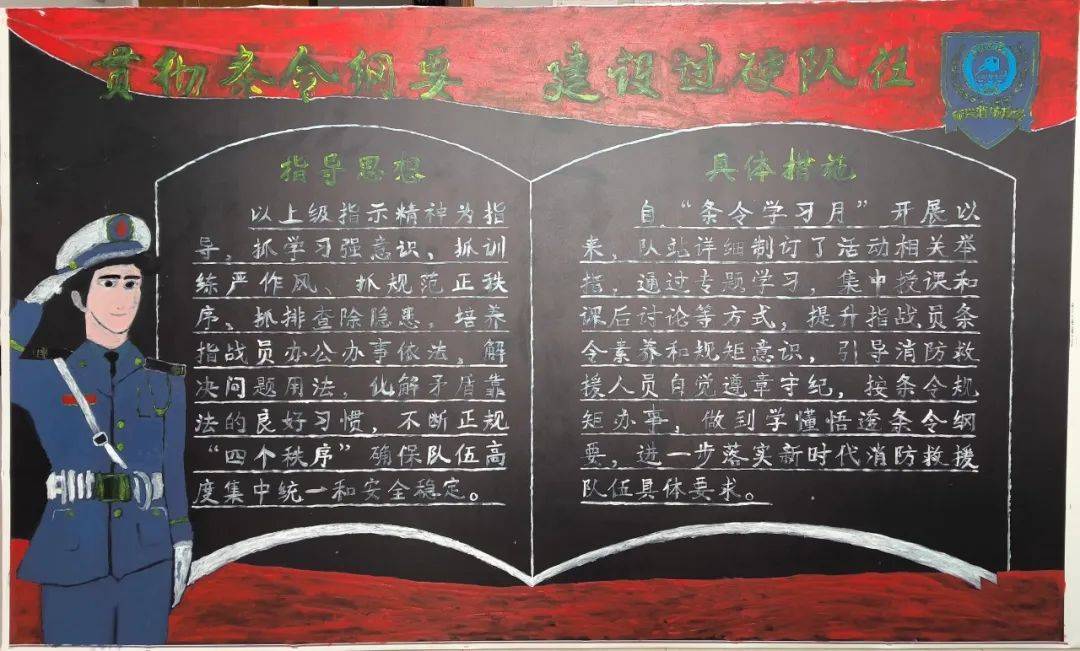 贯彻条令纲要 建设过硬队伍
指导思想
以上级指示精神为指
导，抓学习强意识、抓训
练严作风、抓规范正秩
序、抓排查除隐患，培养
指战员办公办事依法，解
决问题用法，化解矛盾靠
法的良好习惯，不断正规
“四个秩序”确保队伍高
度集中统一和安全稳定。
具体措施
自“条令学习月”开展以
来，队站详细制订了活动相关举
措，通过专题学习，集中授课和
课后讨论等方式，提升指战员条
令素养和规矩意识，引导消防救
援人员自觉遵章守纪，按条令规
矩办事，做到学懂悟透条令纲
要，进一步落实新时代消防救援
队伍具体要求。